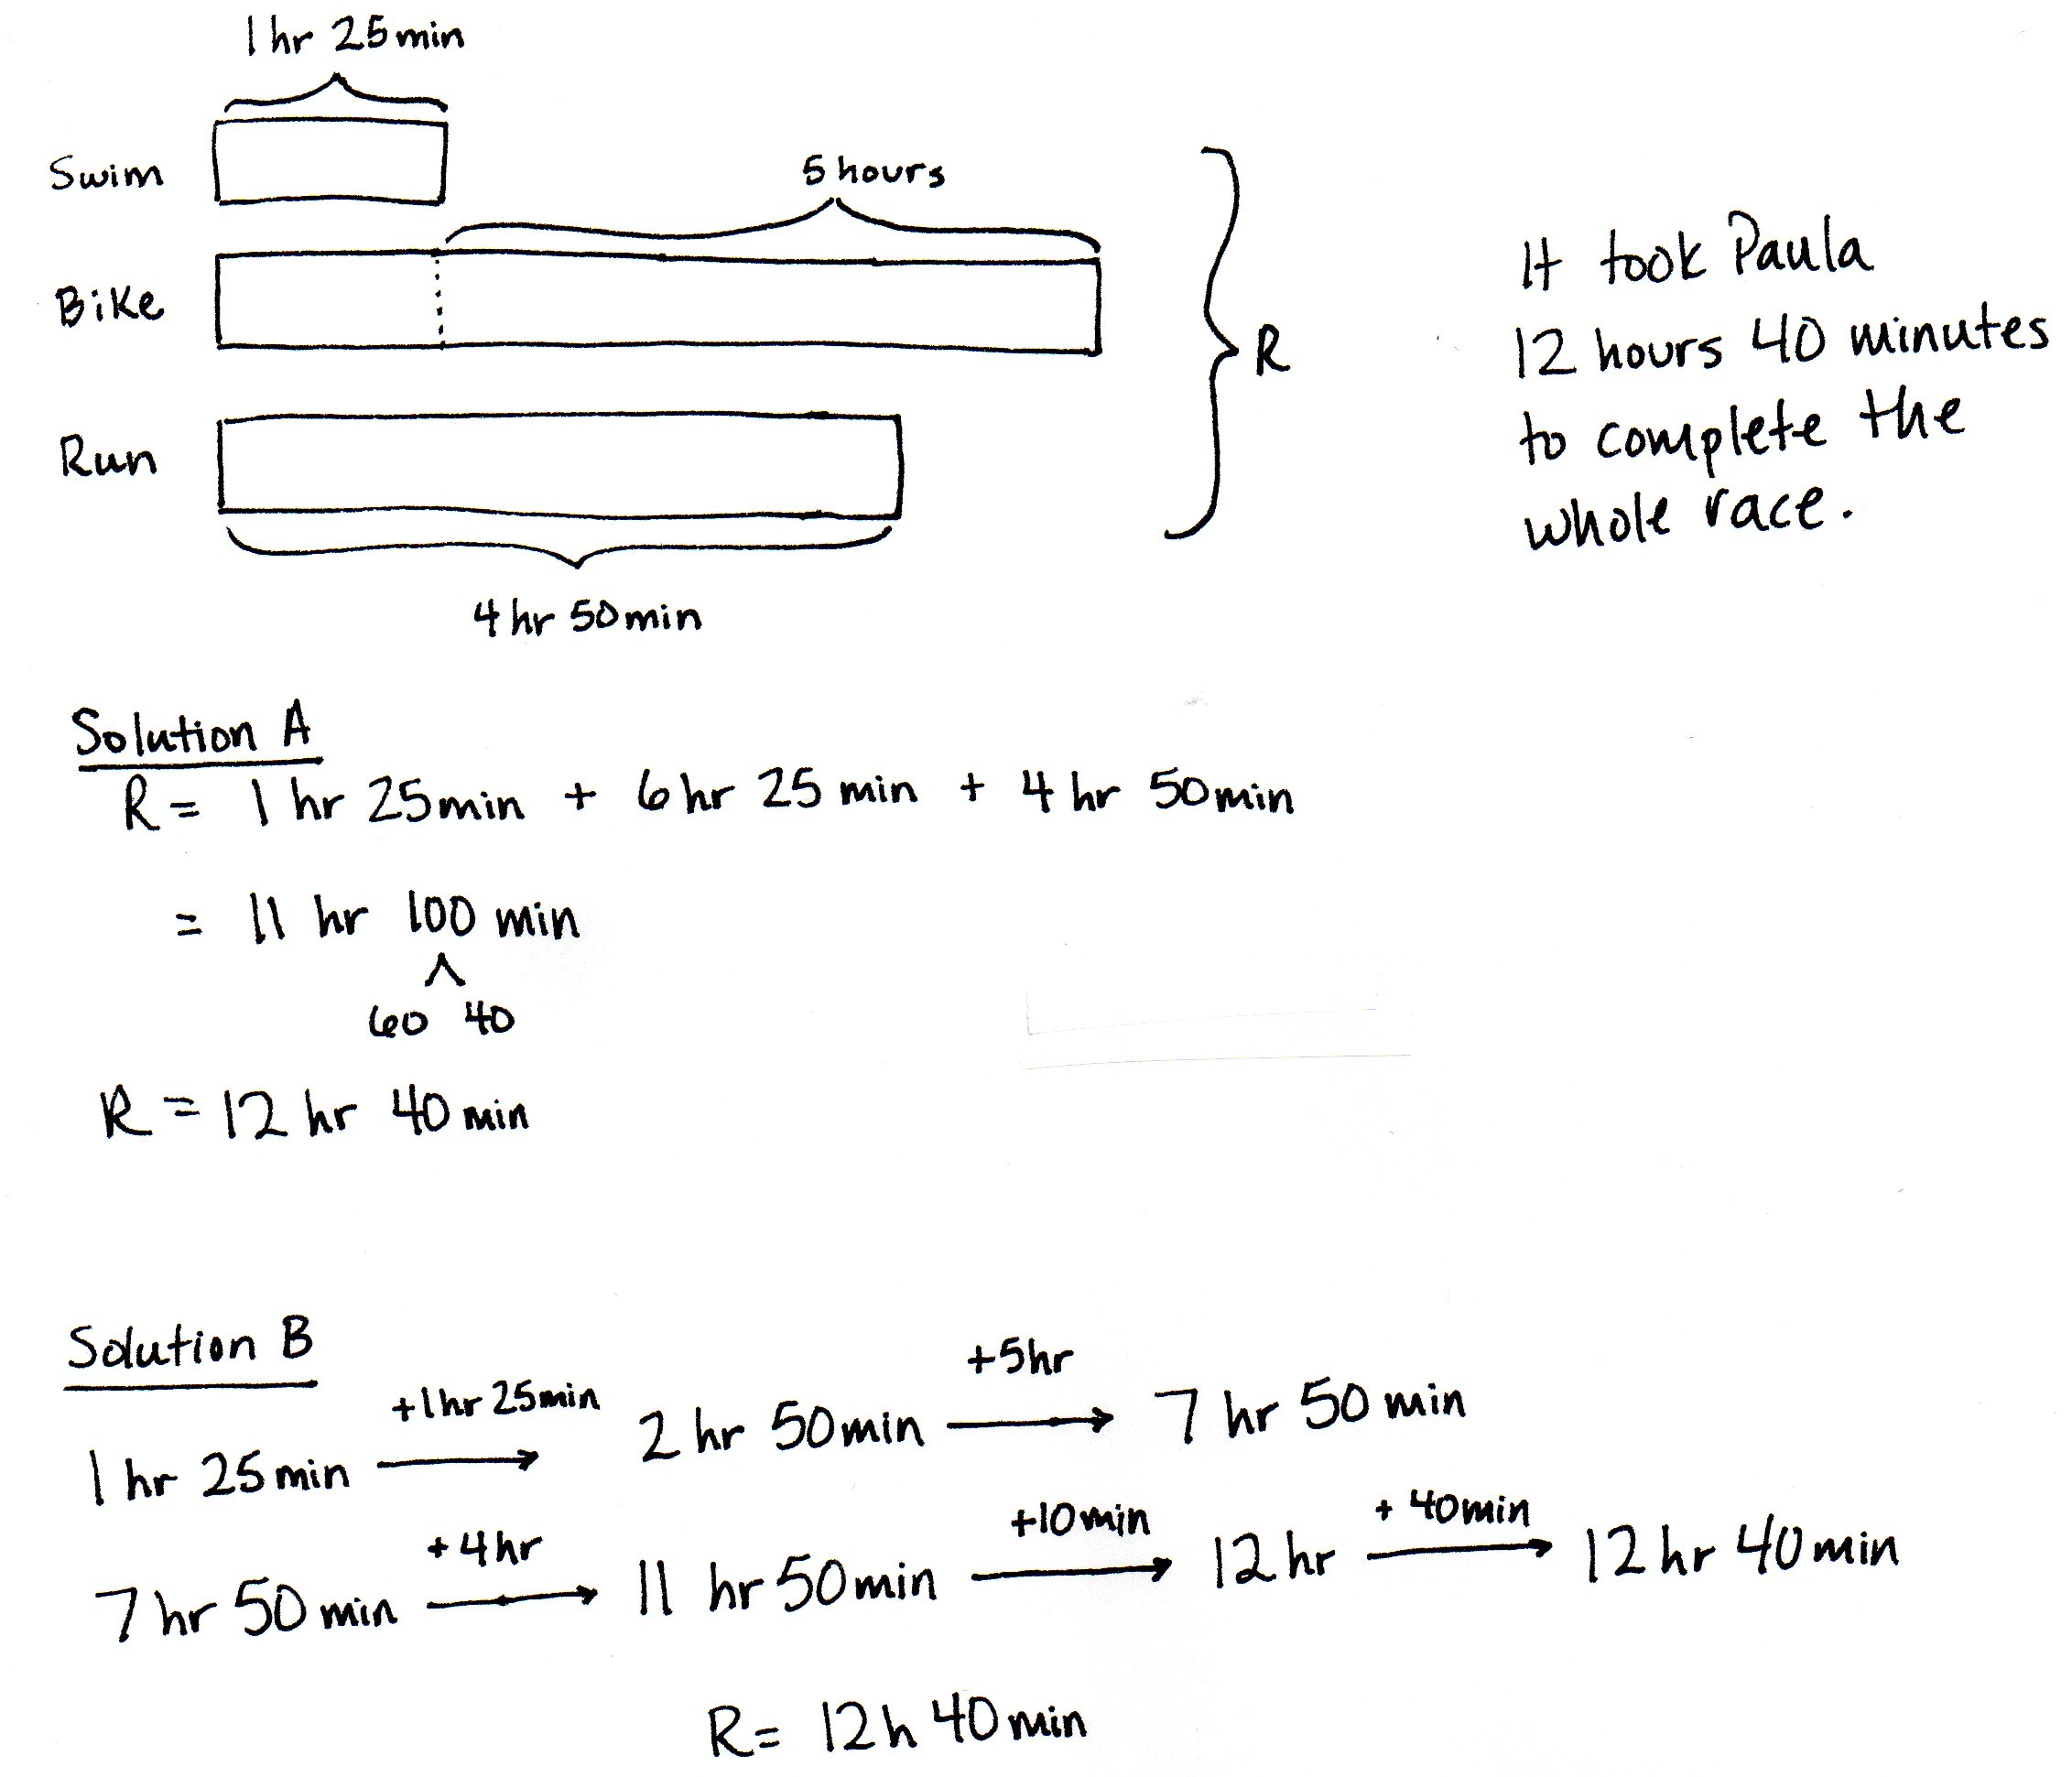 1 hr 25 min
Swim
5 hours
Bike
Run
4 hr 50 min
R
It took Paula
12 hours 40 minutes
to complete the
whole race.
Solution A
R = 1 hr 25 min + 6 hr 25 min + 4 hr 50 min
= 11 hr 100 min
60 40
R = 12 hr 40 min
Solution B
1 hr 25 min +1 hr 25 min → 2 hr 50 min +5 hr → 7 hr 50 min
7 hr 50 min +4 hr → 11 hr 50 min +10 min → 12 hr + 40 min → 12 hr 40 min
R = 12 h 40 min